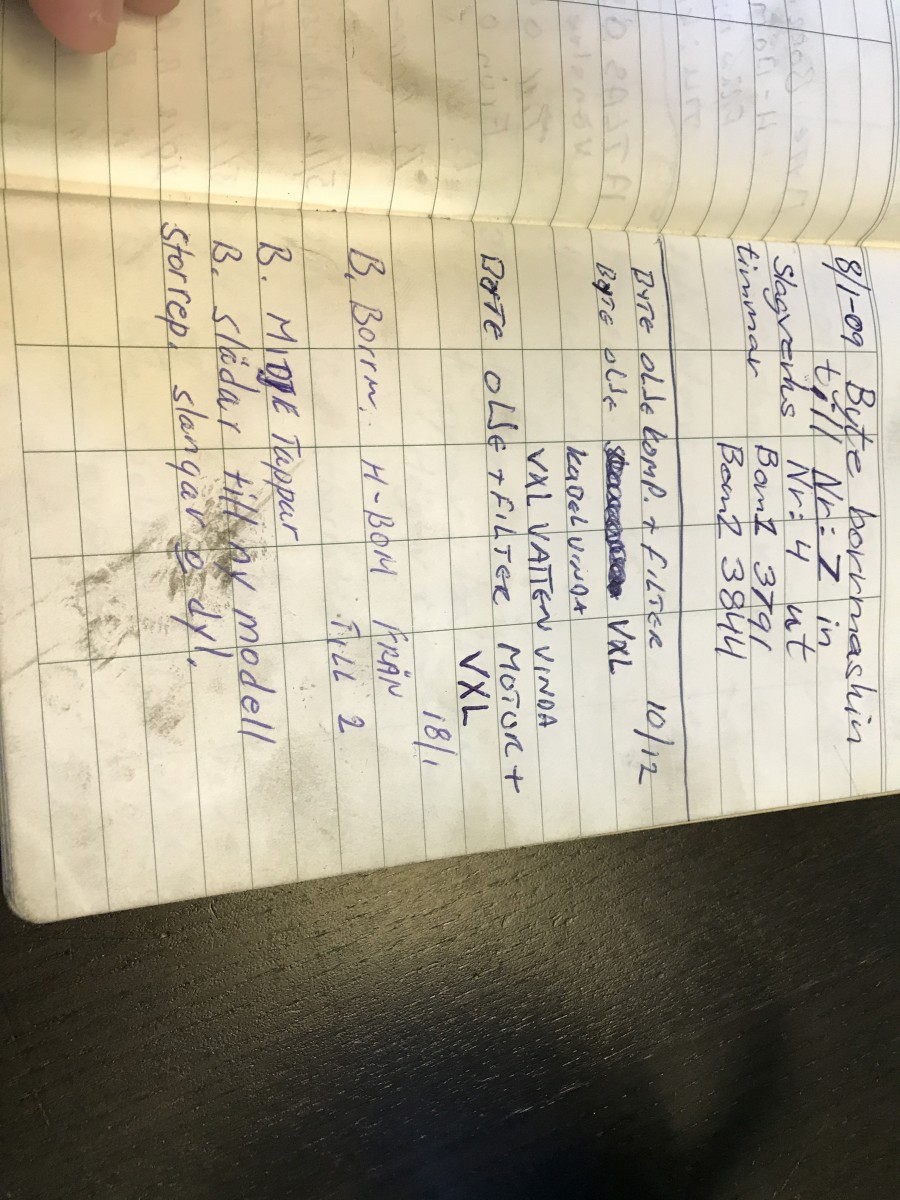 8/1-09 Byte borrmashin
till Nr: 7 in
Slagverks Nr: 4 ut
timmar Bom1 3791
Bom2 3844
Byte olje komp. + filter 10/12
Byte olje VXL
kabelvinda
VXL VATTEN VINDA
Byte olje + FILTER MOTOR +
VXL
18/1
B. Borrm. H-BOM FRÅN
TILL 2
B. MIDJE Tappar
B. Slädar till ny modell
Storrep. slangar o dyl.